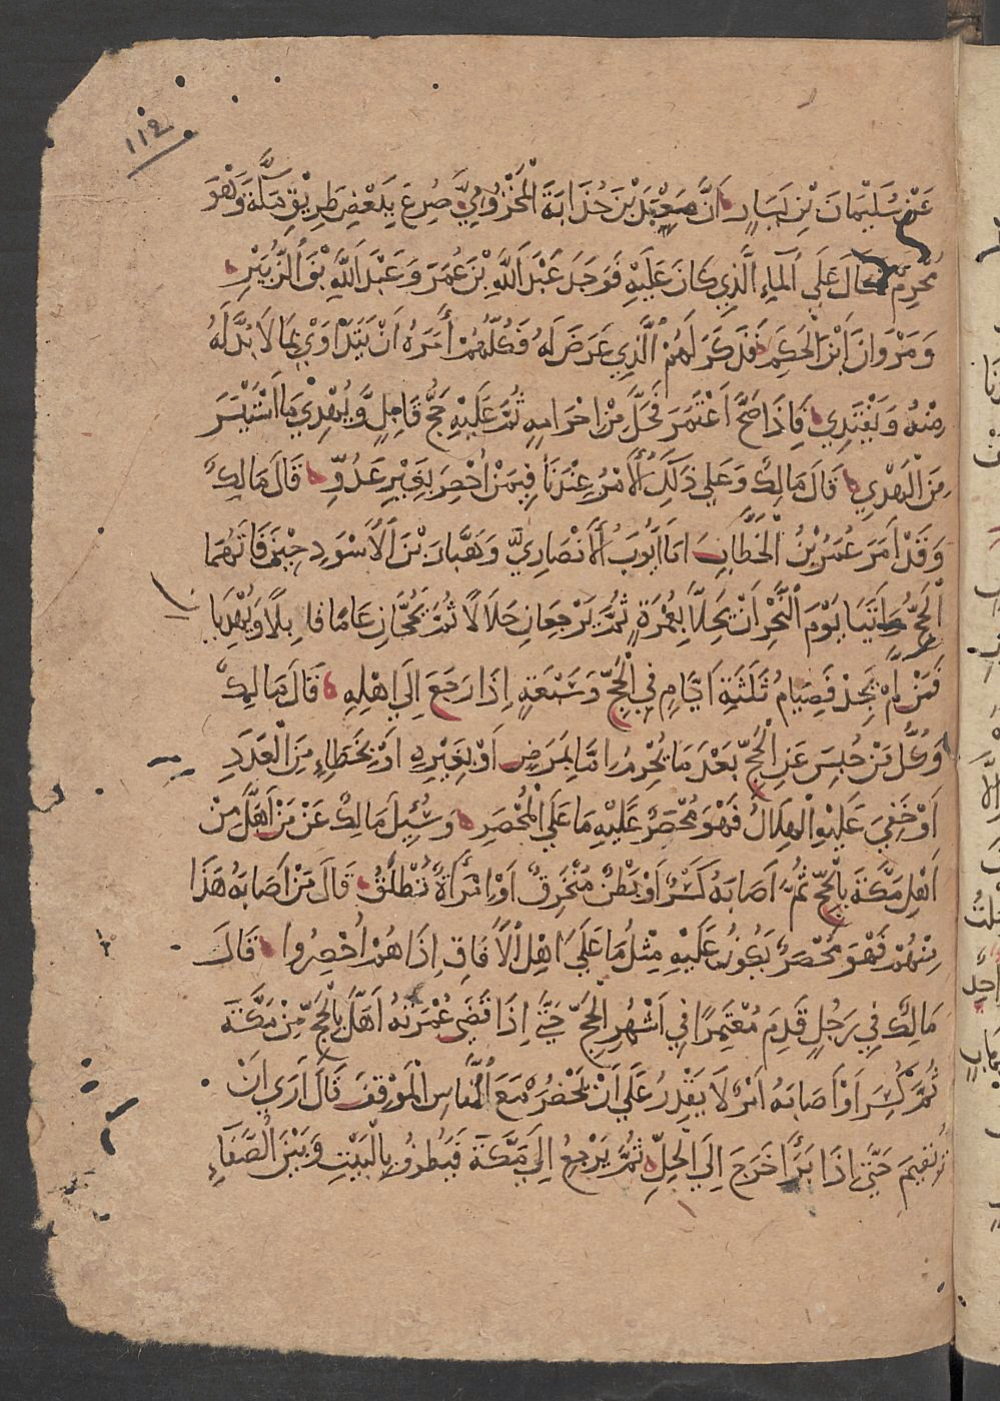 ١١٤
عَنْ سُلَيْمَانَ بْنِ يَسَارٍ اَنَّ مَعْبَدَ بْنَ حُذَابَةَ الْمَخْزُومِيَّ صُرِعَ بِبَعْضِ طَرِيْقِ مَكَّةَ وَهْوَ
مُحْرِمٌ فَسَالَ عَلَي الْمَاءِ الَّذِي كَانَ عَلَيْهِ فَوَجَدَ عَبْدَ اللَّهِ بْنَ عُمَرَ وَعَبْدَ اللَّهِ بْنَ الزُّبَيْرِ
وَمَرْوَانَ ابْنَ الْحَكَمِ فَذَكَرَ لَهُمُ الَّذِي عَرَضَ لَهُ فَكُلُّهُمْ أَمَرَهُ اَنْ يَتَدَاوَيْ بِمَا لَا بُدَّ لَهُ
مِنْهُ وَيَفْتَدِي فَاِذَا صَحَّ اعْتَمَرَ فَحَلَّ مِنْ اِحْرَامِهِ ثُمَّ عَلَيْهِ حَجُّ قَابِلٍ وَّيُهْدِيْ مَا اسْتَيْسَرَ
مِنَ الْهَدْيِ قَالَ مَالِكٌ وَعَلي ذَلِكَ الْأَمْرُ عِنْدَنَا فِيمَنْ اُحْصِرَ بِغَيْرِ عَدُوٍّ قَالَ مَالِكٌ
وَقَدْ اَمَرَ عُمَرُ بْنُ الْخَطَّابِ اَبَا اَيُّوبَ الْأَنْصَارِيَّ وَهَبَّارَ بْنَ الْأَسْوَدِ حِيْنَ فَاتَهُمَا
الْحَجُّ وَاَتَيَا يَوْمَ النَّحْرِ اَنْ يَحِلَّا بِعُمْرَةٍ ثُمَّ يَرْجِعَانِ حَلَالًا ثُمَّ يَحُجَّانِ عَامًا قَابِلًا وَيُهْدِيَا
فَمَنْ لَمْ يَجِدْ فَصِيَامُ ثَلَثَةِ اَيَّامٍ فِي الْحَجِّ وَسَبْعَةٍ اِذَا رَجَعَ اِلَي اَهْلِهِ قَالَ مَالِكٌ
وَكُلُّ مَنْ حُبِسَ عَنِ الْحَجِّ بَعْدَ مَا يُحْرِمُ اِمَّا بِمَرَضٍ اَوْ بِغَيْرِهِ اَوْ بِخَطَاءٍ مِنَ الْعَدَدِ
اَوْ خَفِيَ عَلَيْهِ الْهِلَالُ فَهْوَ مُحْصَرٌ عَلَيْهِ مَا عَلَي الْمُحْصَرِ وَسُئِلَ مَالِكٌ عَنْ مَنْ اَهَلَّ مِنْ
اَهْلِ مَكَّةَ بِالْحَجِّ ثُمَّ اَصَابَهُ كَسْرٌ اَوْ بَطْنٌ مُنْخَرِقٌ اَوِ امْرَأَةٌ تُطْلَقُ قَالَ مَنْ اَصَابَهُ هَذَا
مِنْهُمْ فَهْوَ مُحْصَرٌ يَكُونُ عَلَيْهِ مِثْلُ مَا عَلَي اَهْلِ الْآفَاقِ اِذَا هُمْ اُحْصِرُوا قَالَ
مَالِكٌ فِي رَجُلٍ قَدِمَ مُعْتَمِرًا فِي اَشْهُرِ الْحَجِّ حَتَّي اِذَا قَضَي عُمْرَتَهُ اَهَلَّ بِالْحَجِّ مِنْ مَكَّةَ
ثُمَّ كُسِرَ اَوْ اَصَابَهُ اَمْرٌ لَا يَقْدِرُ عَلَي اَنْ يَحْضُرَ مَعَ النَّاسِ الْمَوْقِفَ قَالَ اَرَي اَنْ
يُقِيمَ حَتَّي اِذَا بَرَأَ خَرَجَ اِلَي الْحِلِّ ثُمَّ يَرْجِعُ اِلَي مَكَّةَ فَيَطُوفُ بِالْبَيْتِ وَبَيْنَ الصَّفَاءِ